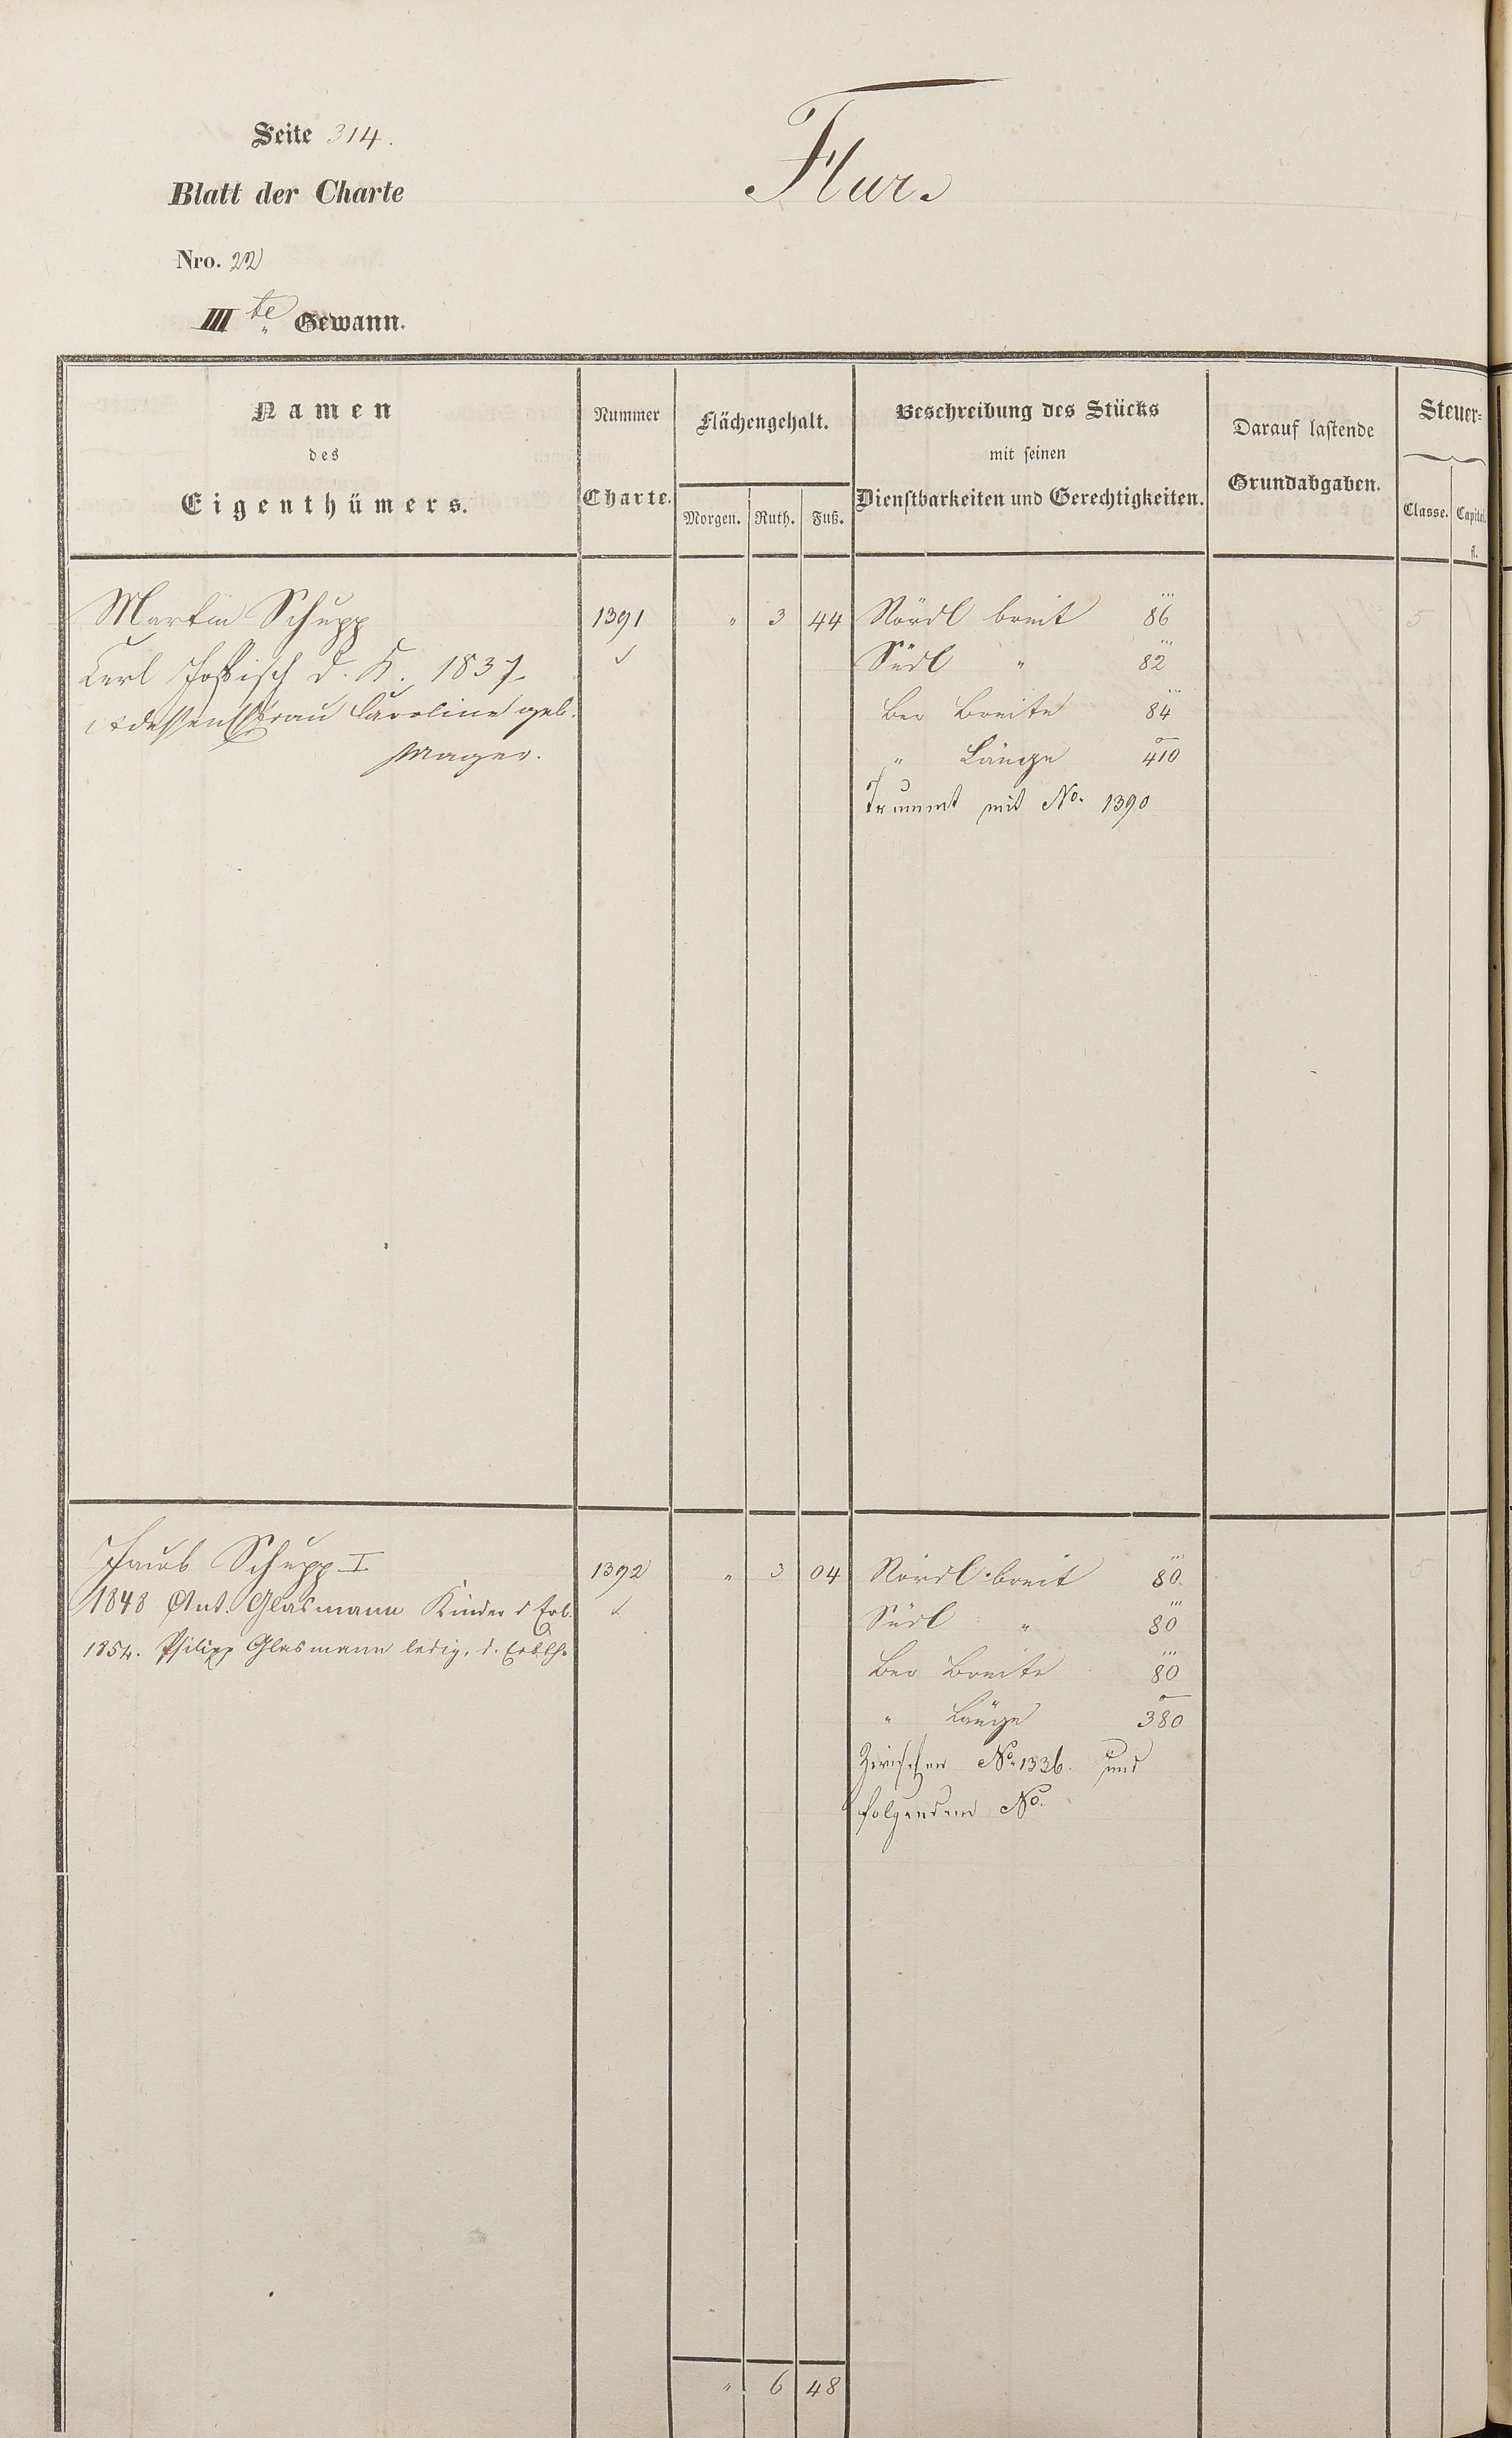 Seite 314.
Flur.
Blatt der Charte
Nro. 22
III te Gewann.
Namen
des
Eigenthümers.
Nummer
Charte.
Flächengehalt.
Morgen. Ruth. Fuß.
Beschreibung des Stücks
mit seinen
Dienstbarkeiten und Gerechtigkeiten.
Darauf lastende
Grundabgaben.
Steuer=
Classe. Capital.
fl.
Martin Schupp 1391 " 3 44 Nördl breit 86 5
Carl d. K. 1837 Südl " 82
dessen Frau Caroline geb. Ber Breite 84
Mager. " Länge 410
Trummt mit No. 1390
Jacob Schupp I 1392 " 3 04 Nördl. breit 80. 5
1848 Ant. Glasmann Kinder d Erb. Südl " 80
1854. Philipp Glasmann ledig, d. Erbth. Ber Breite 80
" Länge 380
Zwischen No. 1336. und
folgendem No.
" 6 48